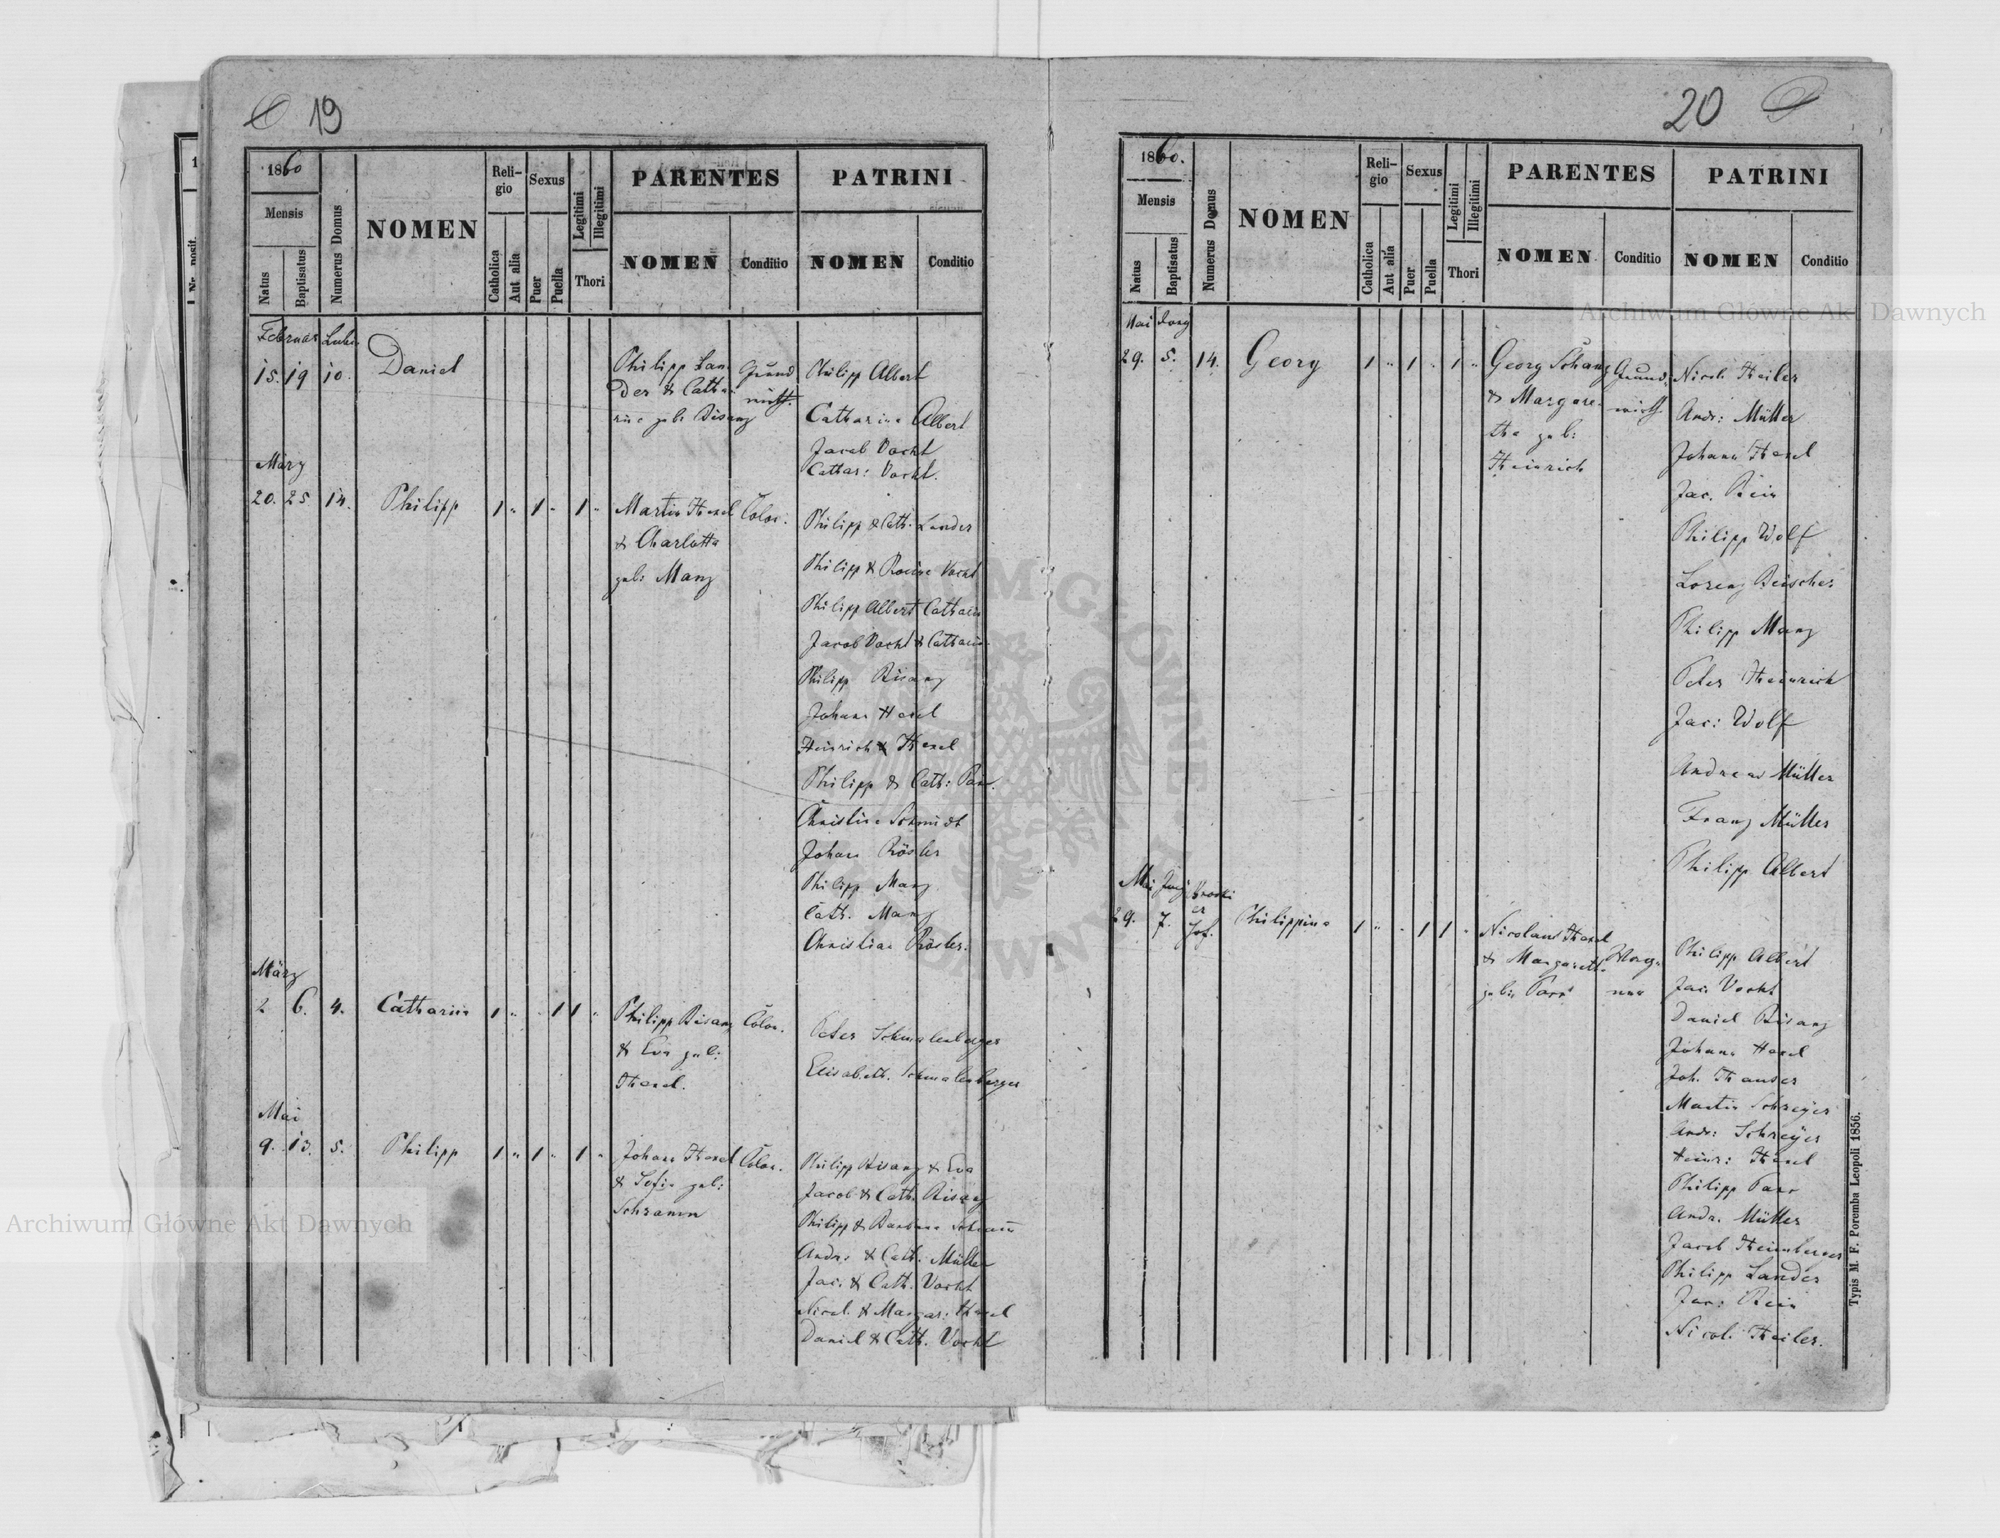 19
1860
Mensis
Natus
Baptisatus
Numerus Domus
NOMEN
Religio
Catholica
Aut alia
Sexus
Puer
Puella
Legitimi
Illegitimi
Thori
PARENTES
NOMEN
Conditio
PATRINI
NOMEN
Conditio
Februar
15. 19 10. Daniel
Philipp Lan
der & Catha
rine geb. Bisanz
Grund
wirth.
Philipp Albert
Catharine Albert
Jacob Vocht
Cathar: Vocht.
März
20. 25 14. Philipp 1 " 1 " 1 "
Martin Hexel
& Charlotta
geb: Manz
Colon.
Philipp & Cath. Lander
Philipp & Rosine Vocht
Philipp Albert Catharin
Jacob Vocht & Catharin
Philipp Bisanz
Johann Hexel
Heinrich & Hexel
Philipp & Cath:
Christine Schmidt
Johann Rösler
Philipp Manz
Cath. Manz
Christine Rösler.
März
2 6. 4. Catharin 1 " " 1 1 "
Philipp Bisanz
& Eva geb:
Hexel.
Colon.
Peter Schmalenberger
Elisabeth. Schmalenberger
Mai
9. 13. 5. Philipp 1 " 1 " 1 "
Johann Hexel
& Sofie geb:
Schramm
Colon.
Philipp Bisanz & Eva
Jacob & Cath. Bisanz
Philipp & Barbara Schram
Andr: & Cath. Müller
Jac: & Cath. Vocht
Nicol. & Margar: Hexel
Daniel & Cath. Vocht
20
1860.
Mensis
Natus
Baptisatus
Numerus Domus
NOMEN
Religio
Catholica
Aut alia
Sexus
Puer
Puella
Legitimi
Illegitimi
Thori
PARENTES
NOMEN
Conditio
PATRINI
NOMEN
Conditio
Mai Juny
29. 5. 14. Georg 1 " 1 " 1 "
Georg Schanz
& Margare-
tha geb:
Heinrich
Grund
wirth.
Nicol: Heiler
Andr: Müller
Johann Hexel
Jac. Bein
Philipp Wolf
Lorenz
Philipp Manz
Peter Heinrich
Jac: Wolf
Andreas Müller
Franz Müller
Philipp Albert
Mai Juny
29. 7. Philippina 1 " " 1 1 "
Nicolaus Hexel
& Margareth.
geb:
Philipp Albert
Jac. Vocht
Daniel Bisanz
Johann Hexel
Joh. Hauser
Martin Schreyer
Andr: Schreyer
Heinr: Hexel
Philipp
Andr. Müller
Jacob Heimberger
Philipp Lander
Jac: Bein
Nicol. Heiler.
Typis M. F. Poremba Leopoli 1856.
Archiwum Główne Akt Dawnych
Archiwum Główne Akt Dawnych